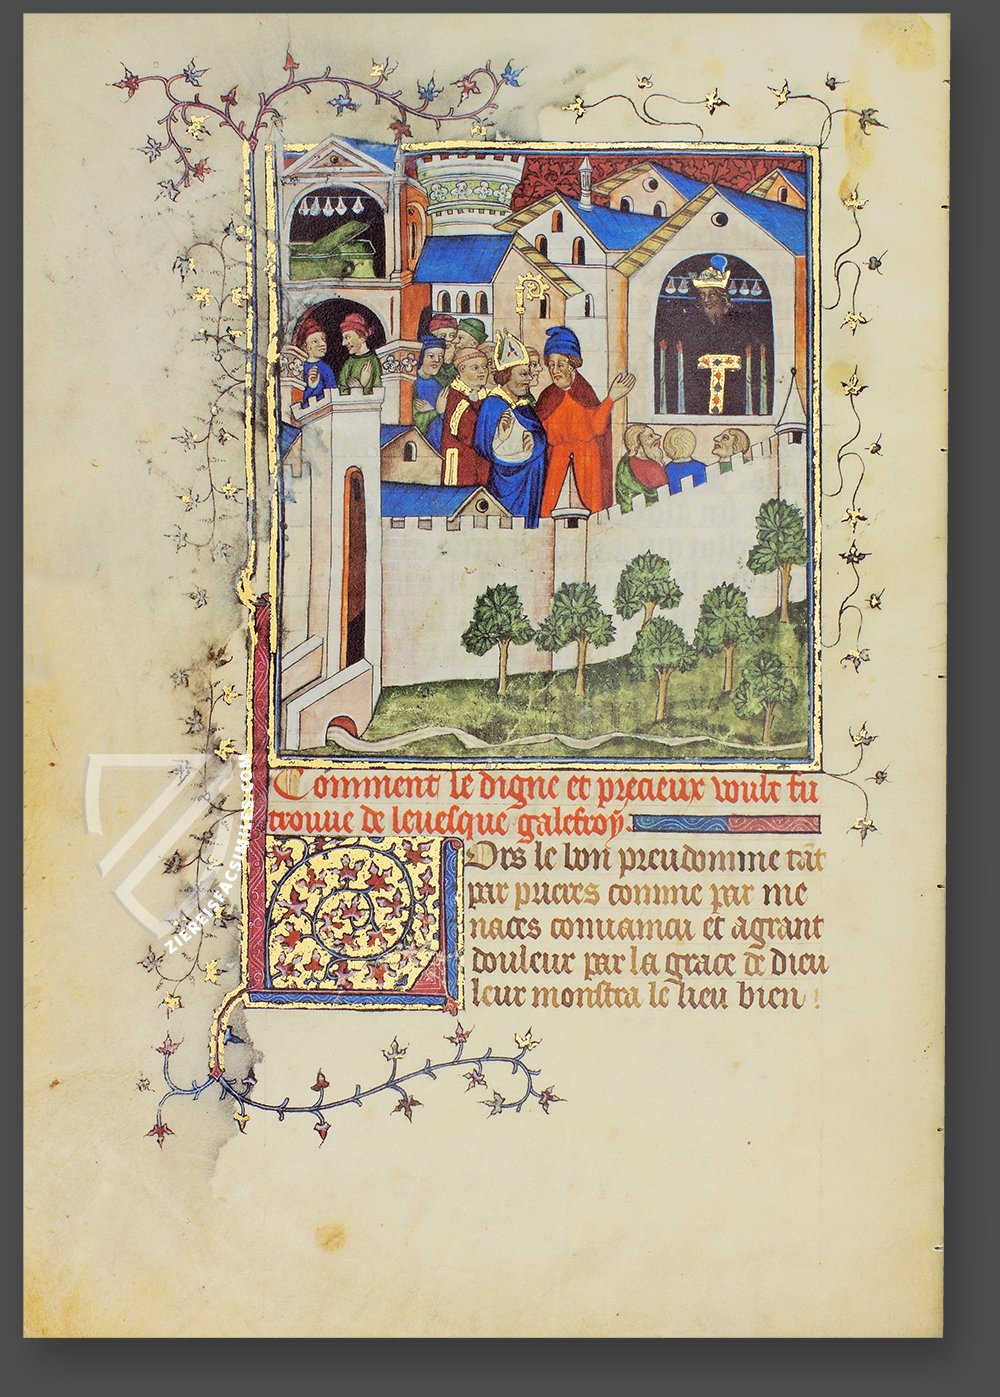 Comment le digne et precieux voult fu
trouue de leuesque galefroy.
Ors le bon preudomme tāt
par prieres comme par me
naces conuaincu et agrant
douleur par la grace de dieu
leur monstra le lieu bien !
ZIEREIS FACSIMILES.COM